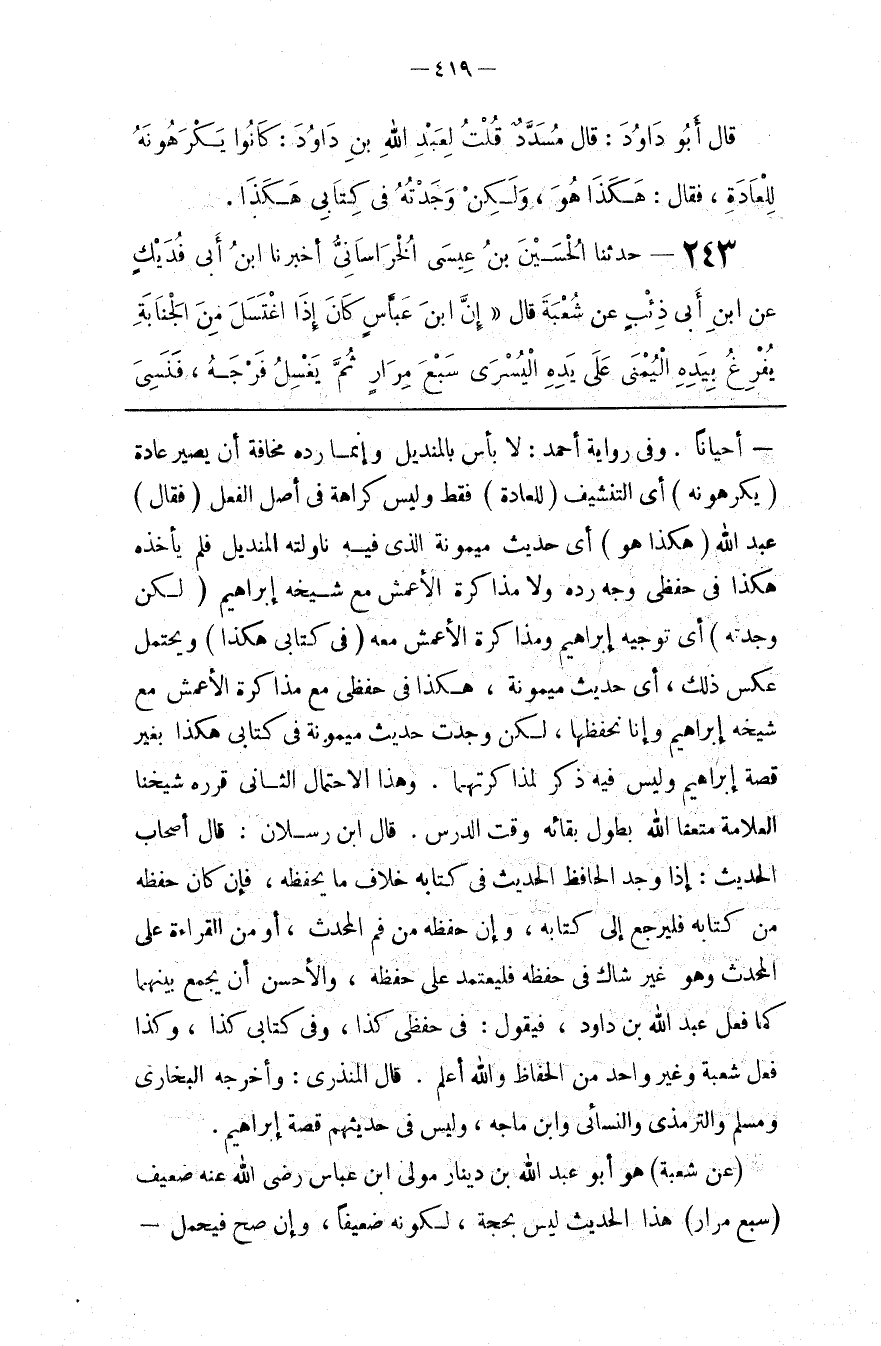 — ٤١٩ —
قال أَبُو دَاوُدَ : قال مُسَدَّدٌ قُلْتُ لِعَبْدِ اللهِ بنِ دَاوُدَ : كَانُوا يَكْرَهُونَهُ
لِلْعَادَةِ ، فقال : هَكَذَا هُوَ ، وَلَكِنْ وَجَدْتُهُ فى كِتَابِى هَكَذَا .
٢٤٣ — حدثنا الْحُسَيْنُ بنُ عِيسَى الْخُرَاسَانِىُّ أخبرنا ابنُ أَبى فُدَيْكٍ
عن ابنِ أَبى ذِئْبٍ عن شُعْبَةَ قال « إِنَّ ابنَ عَبَّاسٍ كَانَ إِذَا اغْتَسَلَ مِنَ الْجَنَابَةِ
يُفْرِغُ بِيَدِهِ الْيُمْنَى عَلَى يَدِهِ الْيُسْرَى سَبْعَ مِرَارٍ ثُمَّ يَغْسِلُ فَرْجَهُ ، فَنَسِىَ
— أحياناً . وفى رواية أحمد : لا بأس بالمنديل وإنما رده مخافة أن يصير عادة
( يكرهونه ) أى التنشيف ( للعادة ) فقط وليس كراهة فى أصل الفعل ( فقال )
عبد الله ( هكذا هو ) أى حديث ميمونة الذى فيه ناولته المنديل فلم يأخذه
هكذا فى حفظى وجه رده ولا مذاكرة الأعمش مع شيخه إبراهيم ( لكن
وجدته ) أى توجيه إبراهيم ومذاكرة الأعمش معه ( فى كتابى هكذا ) ويحتمل
عكس ذلك ، أى حديث ميمونة ، هكذا فى حفظى مع مذاكرة الأعمش مع
شيخه إبراهيم وإنا نحفظها ، لكن وجدت حديث ميمونة فى كتابى هكذا بغير
قصة إبراهيم وليس فيه ذكر لمذاكرتهما . وهذا الاحتمال الثانى قرره شيخنا
العلامة متعنا الله بطول بقائه وقت الدرس . قال ابن رسلان : قال أصحاب
الحديث : إذا وجد الحافظ الحديث فى كتابه خلاف ما يحفظه ، فإن كان حفظه
من كتابه فليرجع إلى كتابه ، وإن حفظه من فم المحدث ، أو من القراءة على
المحدث وهو غير شاك فى حفظه فليعتمد على حفظه ، والأحسن أن يجمع بينهما
كما فعل عبد الله بن داود ، فيقول : فى حفظى كذا ، وفى كتابى كذا ، وكذا
فعل شعبة وغير واحد من الحفاظ والله أعلم . قال المنذرى : وأخرجه البخارى
ومسلم والترمذى والنسائى وابن ماجه ، وليس فى حديثهم قصة إبراهيم .
(عن شعبة) هو أبو عبد الله بن دينار مولى ابن عباس رضى الله عنه ضعيف
(سبع مرار) هذا الحديث ليس بحجة ، لكونه ضعيفاً ، وإن صح فيحمل —